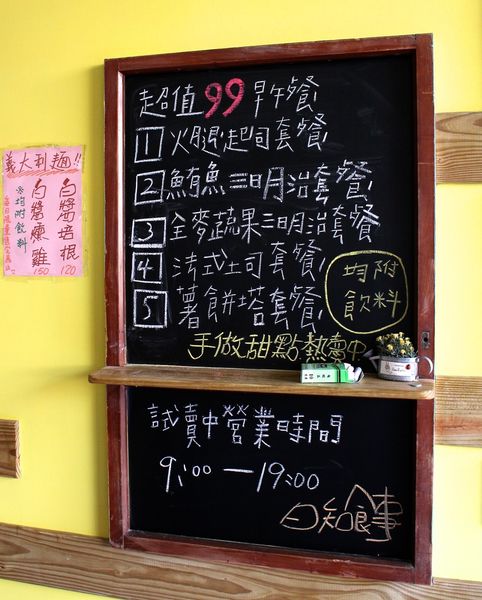 超值99早午餐
1 火腿起司套餐
2 鮪魚三明治套餐
3 全麥蔬果三明治套餐
4 法式土司套餐
5 薯餅塔套餐
均附
飲料
手做甜點熱賣中
試賣中營業時間
9:00 — 19:00
日知食事
義大利麵!!
白醬培根 120
白醬燻雞 150
※均附飲料